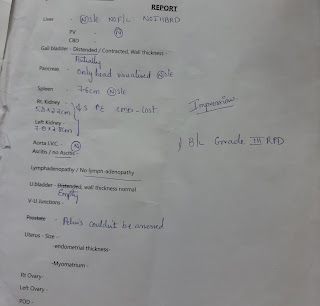 REPORT
Liver - (N)s/e NO F/L NO IHBRD
PV - (N)
CBD -
Gall bladder - Distended / Contracted, Wall thickness -
Partially
Pancreas - Only head visualised (N)s/e
Spleen - 7.6cm (N)s/e
Rt. Kidney -
Left Kidney -
Impression
Aorta I.V.C. - (N)
B/L Grade III RPD
Ascitis / no Ascitis -
Lymphadenopathy / No lymph adenopathy
U.bladder - Distended, wall thickness normal
Empty
V-U Junctions -
Prostate - Pelvis couldn't be assessed
Uterus - Size -
-endometrial thickness-
-Myomatrium -
Rt Ovary -
Left Ovary -
POD -